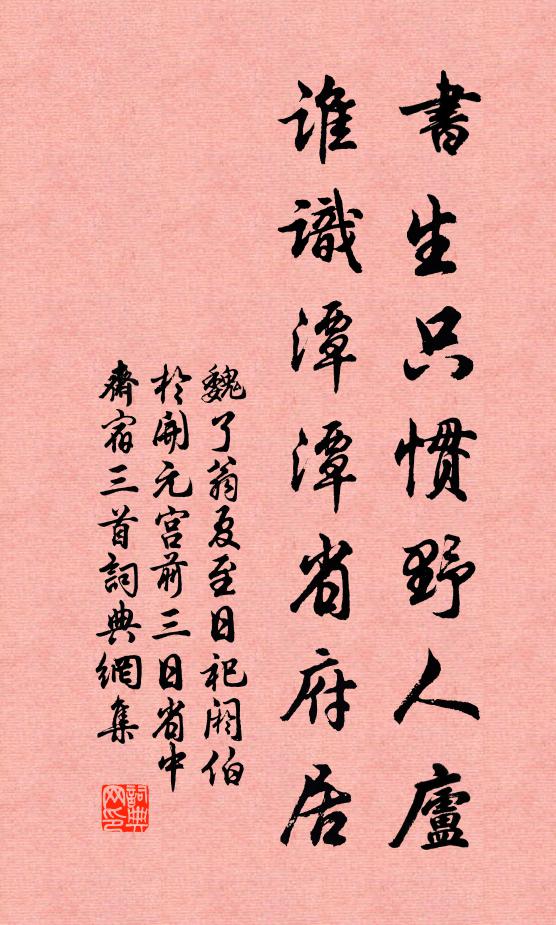 書生只慣野人廬
誰識潭潭省府居
魏了翁夏至日祀閼伯
於開元宮前三日省中
齋宿三首詞典網集
詞典
网印